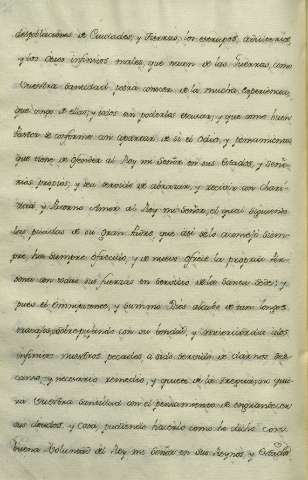 despoblaciones de Ciudades, y tierras, los estrupos, adulterios,
y los otros infinitos males, que nacen de las Guerras, como
Vuestra Santidad podrá conocer de la mucha experiencia,
que tiene de ellas; y estos sin poderlos escusar; y que como buen
Pastor se conforme con apartar de si el Odio, y
que tiene de ofender al Rey mi Señor en sus Estados, y Seño-
rios propios; y sea servido de abrazar, y recivir con Chari-
dad, y Paterno Amor al Rey mi Señor, el qual siguiendo
las pisadas de su gran Padre que asi se lo aconsejó siem-
pre, ha siempre ofrecido, y de nuevo ofrece la propria Per-
sona con todas sus fuerzas en servicio de la Santa Sede; y
pues el Omnipotente, y Summo Dios alcabo de tan largos
trabajos, sobrepujando con su bondad, y misericordia a los
infinitos nuestros pecados a sido servido de darnos des-
canso, y necesario remedio, y quiere de la
na Vuestra Santidad con el pensamiento de engrandecer
sus deudos, y casa, pudiendo hacerlo como he dicho con
buena Voluntad del Rey mi Señor en sus Reynos, y Estados